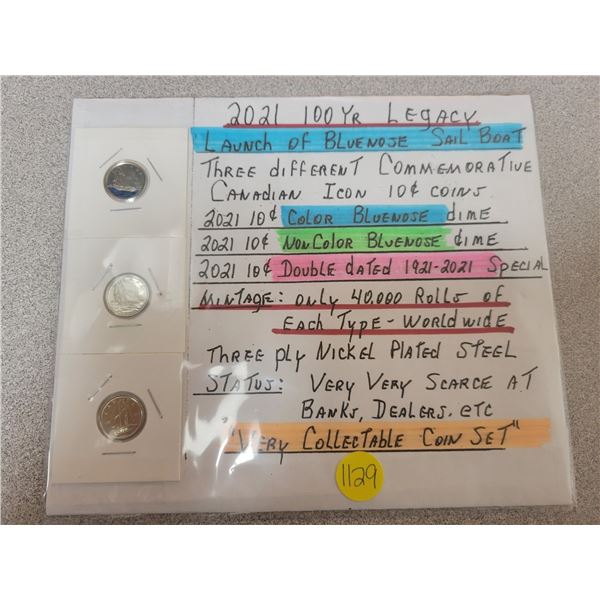 2021 100 Yr Legacy
Launch of Bluenose Sail Boat
Three different Commemorative
Canadian Icon 10¢ coins.
2021 10¢ Color Bluenose dime
2021 10¢ NonColor Bluenose dime
2021 10¢ Double dated 1921-2021 Special
Mintage: only 40,000 Rolls of
Each Type - Worldwide
Three ply Nickel Plated Steel
Status: Very Very Scarce at
Banks, Dealers, etc
"Very Collectable Coin Set"
1129